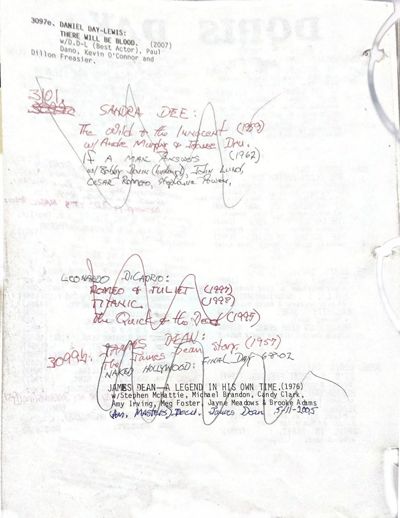 3097e. DANIEL DAY-LEWIS:
THERE WILL BE BLOOD. (2007)
w/D.D-L (Best Actor), Paul
Dano, Kevin O'Connor and
Dillon Freasier.
3101
SANDRA DEE:
The Wild & the Innocent (1959)
w/ Audie Murphy & Joanne Dru.
If A MAN Answers (1962)
w/ Bobby Darin (husband), John Lund,
Cesar Romero, Stephanie Powers.
LEONARDO DiCAPRIO:
ROMEO & JULIET (1997)
TITANIC (1998)
the Quick & the Dead (1995)
JAMES DEAN:
3099b. The James Dean Story (1957)
NAKED HOLLYWOOD: FINAL DAY 68-02
JAMES DEAN—A LEGEND IN HIS OWN TIME.(1976)
w/Stephen McHattie, Michael Brandon, Candy Clark,
Amy Irving, Meg Foster, Jayne Meadows & Brooke Adams
(Am. MASTERS) Docu. James Dean 5-11-2005